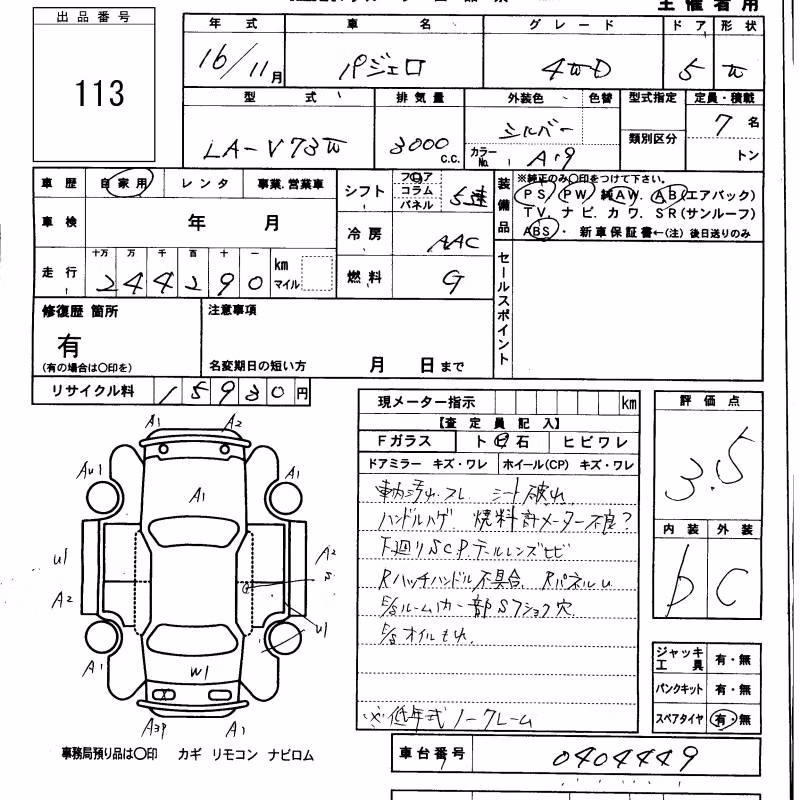 主催者用
出品番号
113
年式 車名 グレード ドア 形状
16/11月 パジェロ 4WD 5 W
型式 排気量 外装色 色替 型式指定 定員・積載
LA-V73W 3000 c.c. シルバー カラーNo. A19 類別区分 7名 トン
車歴 自家用 レンタ 事業.営業車
車検 年 月
走行 十万 万 千 百 十 一
244290 km マイル
シフト フロア コラム パネル 5速
冷房 AAC
燃料 G
装備品
※純正のみ〇印をつけて下さい。
PS PW 純AW. AB(エアバック)
TV. ナビ. カワ. SR(サンルーフ)
ABS・ 新車保証書←(注) 後日送りのみ
セールスポイント
修復歴 箇所
有
(有の場合は〇印を)
注意事項
名変期日の短い方 月 日まで
リサイクル料 15930円
現メーター指示 km
【査定員記入】
Fガラス ト日石 ヒビワレ
ドアミラー キズ・ワレ ホイール(CP) キズ・ワレ
車内汚れ.フレ シート破れ
ハンドルハゲ. 燃料計メーター不良?
下廻りSCP.テールレンズヒビ
Rハッチハンドル不具合. RパネルU
E/gルームカバー部Sフショク穴
E/gオイルモレ
※低年式ノークレーム
評価点
3.5
内装 外装
b C
ジャッキ工具 有・無
パンクキット 有・無
スペアタイヤ 有・無
A1 A2
AU1 A1 A1
U1 A2
A2 S
U1
A1 W1
A39 A1
事務局預り品は〇印 カギ リモコン ナビロム
車台番号 0404449